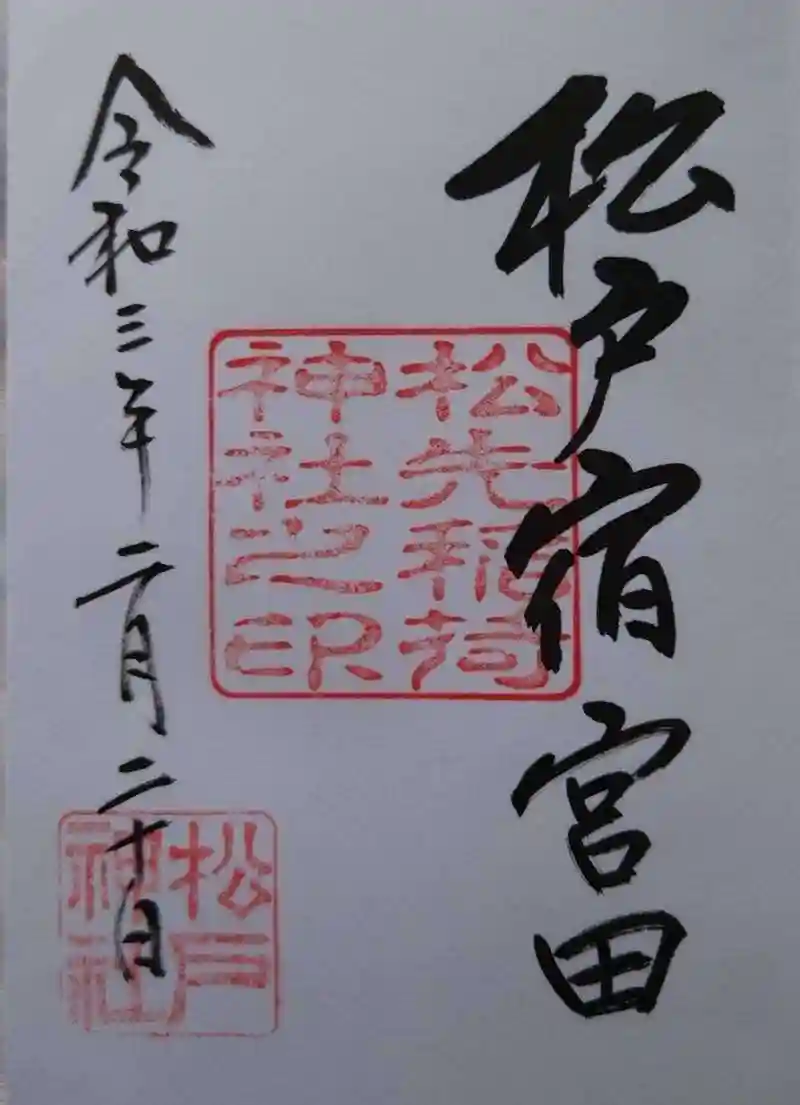 松戸宿宮田
松先稲荷
神社之印
令和三年二月二十日
松戸
神社